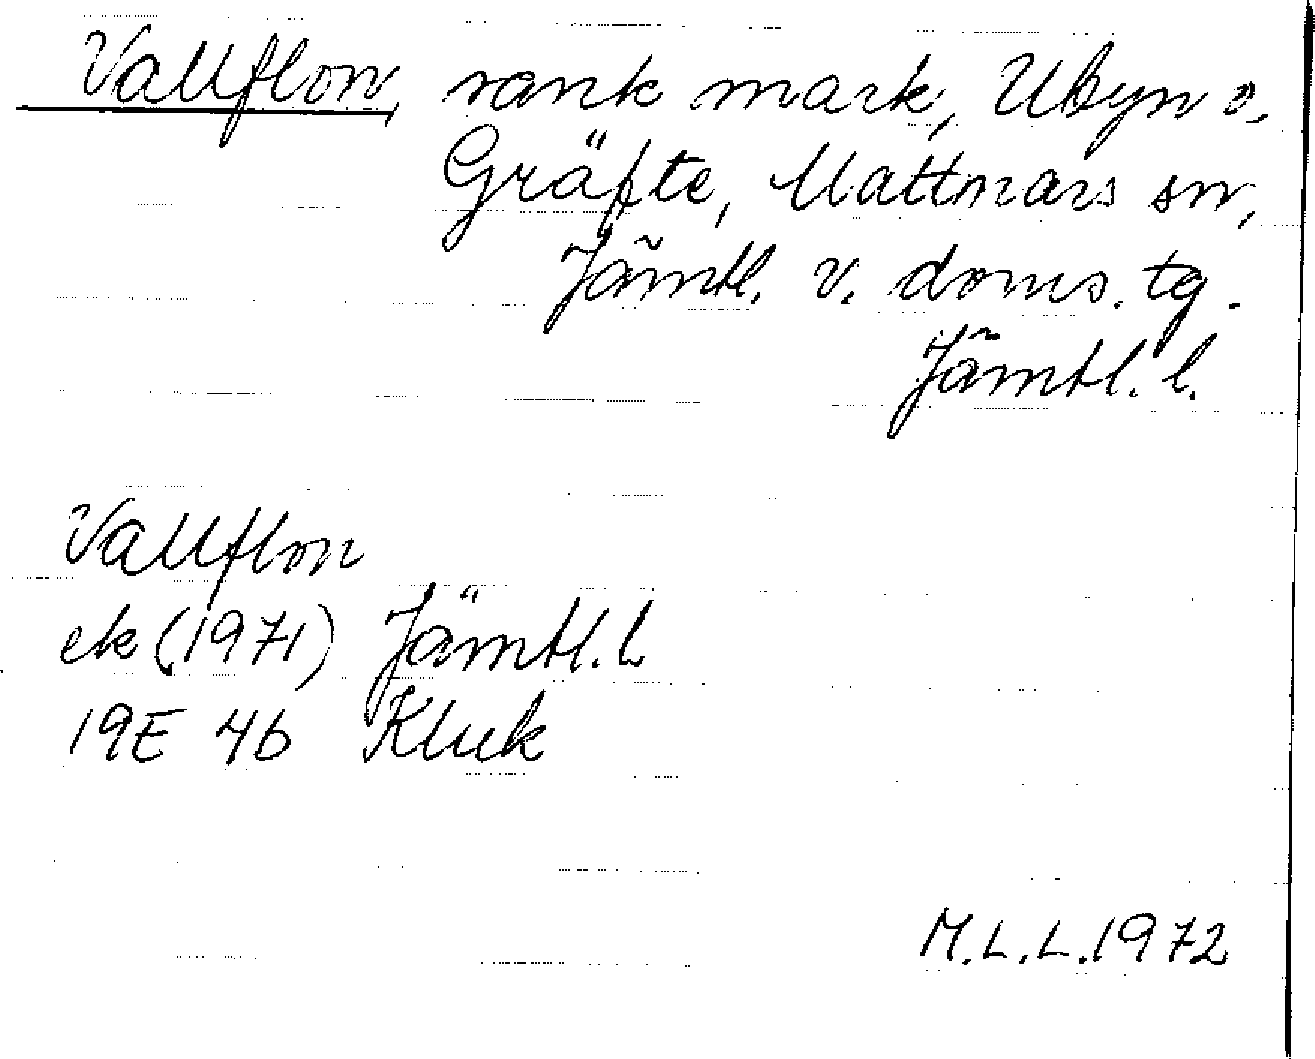 Vallflon, sank mark, Ubyn o.
Gräfte, Mattmars sn,
Jämtl. v. doms. tg.
Jämtl. l.
Vallflon
ek (1971) Jämtl. l.
19E 4b Kluk
M.L.L. 1972